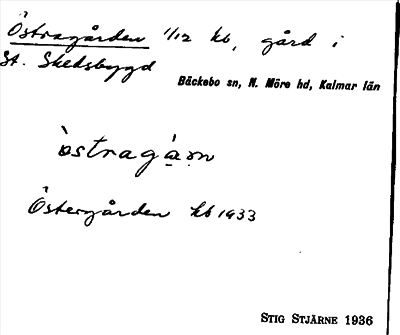 Östragården 1/12 kb, gård i
St. Skedsbygd
Bäckebo sn, N. Möre hd, Kalmar län
òstragá̱ṃ
Östergården kb 1933
STIG STJÄRNE 1936